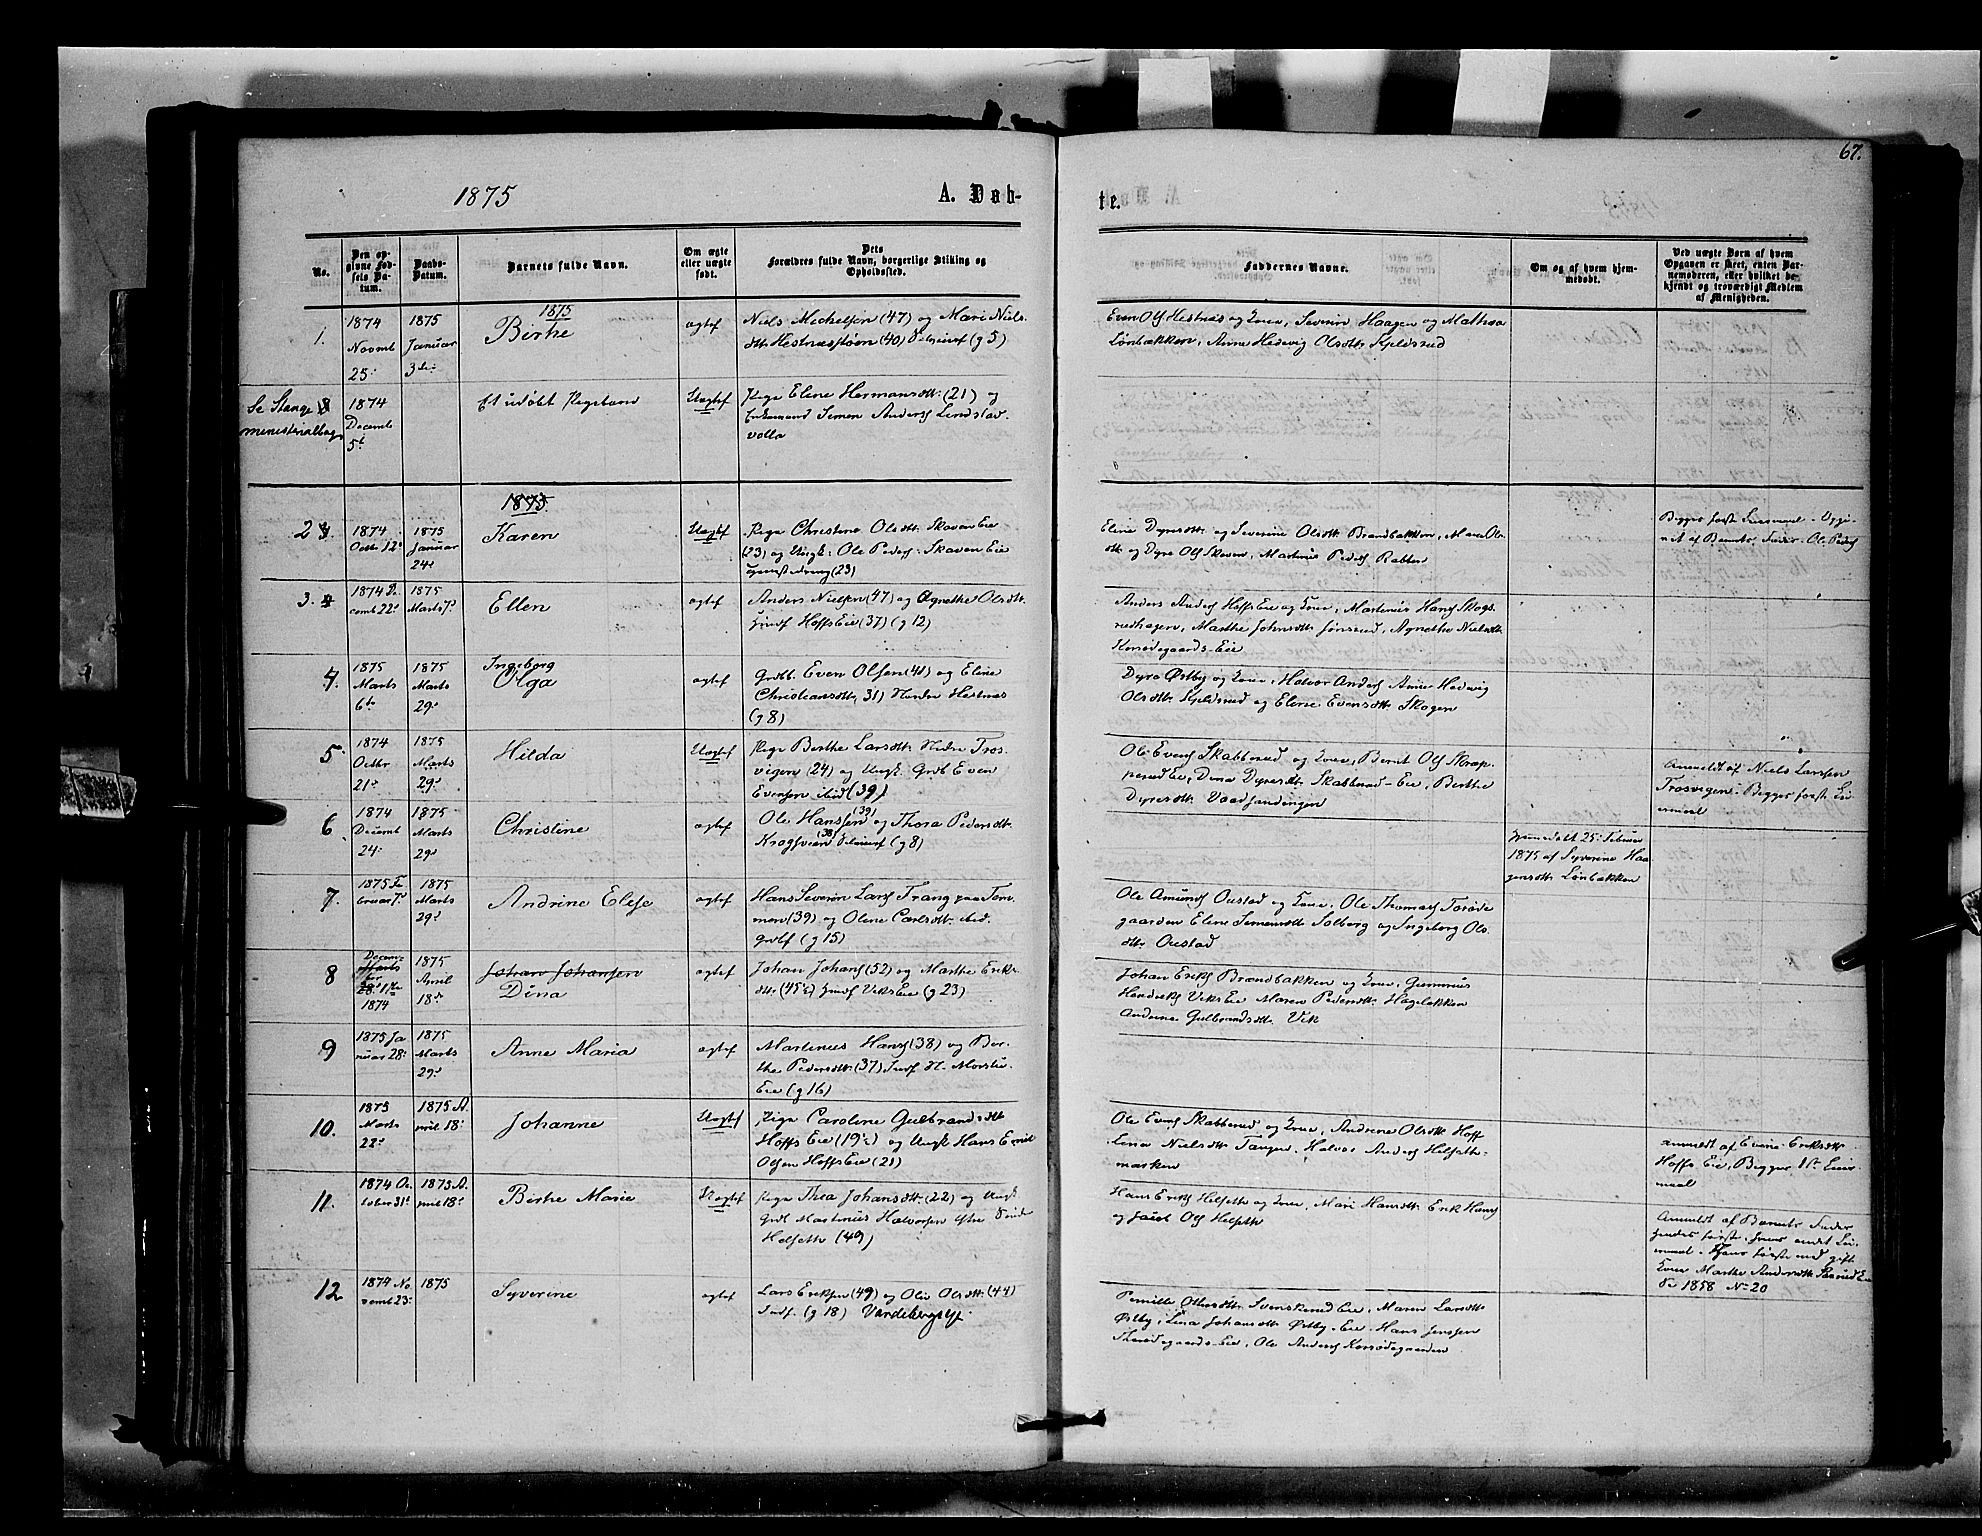 67.
1875
A. Døb-
te.
No.
Den op-
givne Fød-
sels Da-
tum.
Daabs-
Datum.
Barnets fulde Navn.
Om ægte
eller uægte
født.
Dets
Forældres fulde Navn, borgerlige Stilling og
Opholdssted.
Faddernes Navne.
Om og af hvem hjem-
medøbt.
Ved uægte Børn af hvem
Opgaven er skeet, enten Bar-
nemoderen, eller hvilket be-
kjendt og troværdigt Medlem
af Menigheden.
1.
1874
Novmb
25.
1875
Januar
3die
1875
Birthe
ægtef
Niels Michelsen (47) og Mari Niels
dtt. Hestnæstøen (40) (g 5)
Even Ols Hestnæs og Kone, Severin Haagen og Mathea
Lønbækken, Anne Hedevig Olsdtt. Kjeldsrud
Se Stange
ministerialbog
1874
Decemb
5t
Et udøbt Pigebarn
Uægtef
Pige Eline Hermansdtt. (21) og
Enkemand Simen Anders Lindstad-
volla
1875.
2
1874
Octb. 12t
1875
Januar
24.
Karen
Uægtef
Pige Christine Olsdtt. Skaven Eie
(23) og Ungk. Ole Peders. Skaven Eie
(23)
Eline Dyresdtt. og Severine Olsdtt. Brændbækken, Maren Ols-
dtt. og Dyre Ols Skaven, Martinus Peders Rabben
Begges første Leiermaal - Opgi-
vet af Barnets Fader Ole Peders
3.
1874 De
cemb 22.
1875
Marts 7.
Ellen
ægtef
Anders Nielsen (47) og Agnethe Olsdtt.
Indf. Hoffs Eie (37) (g 12)
Anders Anders Hoffs Eie og Kone, Martinus Hans Skogs-
rudhagen, Marthe Johnsdtt. Jønsrud, Agnethe Nielsdtt.
Korsødegaards-Eie
4.
1875
Marts
6te
1875
Marts
29.
Ingeborg
Olga
ægtef
Grdb. Even Olsen (41) og Eline
Christiansdtt. (31) Nordre Hestnæs
(g 8)
Dyre Østby og Kone, Halvor Anders Anne Hedevig
Olsdtt. Kjeldsrud og Eline Evensdtt. Skogen
5.
1874
Octbr
21.
1875
Marts
29.
Hilda
Uægtef
Pige Berthe Larsdtt. Nedre Tros-
vigen (24) og Ungk. Grdb Even
Evensen ibid (39)
Ole Evens Skabberud og Kone, Bernt Ols Skræp-
perud Eie, Dina Dyresdtt. Skabberud-Eie, Berthe
Dyresdtt. Vaadsandengen
Anmeldt af Niels Larssen
Trosvigen. Begges første Lei-
ermaal
6
1874
Decemb
24.
1875
Marts
29.
Christine
ægtef
Ole Hanssen (39) og Thora Pedersdtt.
Kragsveen (38) (g 8)
hjemmedøbt 25. Februar
1875 af Syverine Haa-
gensdtt. Lønbækken
7.
1875 Fe
bruar 7.
1875
Marts
29.
Andrine Elise
ægtef
Hans Severin Lars Trang paa Tom-
men (39) og Oline Carlsdtt. ibid.
grdbf (g 15)
Ole Amunds Oustad og Kone, Ole Thomas Torøde-
gaarden Eline Simensdtt. Solberg og Ingeborg Ols-
dtt. Oustad
8
Decem-
ber
1ste
1874
1875
April
18de
Johan Johansen
Dina
ægtef
Johan Johans (52) og Marthe Eriks-
dtt. (45½) Indf Viks Eie (g 23)
Johan Eriks Brændbækken og Kone, Gunerius
Hendriks Viks Eie Maren Pedersdtt. Hagelækken
Andrine Gulbrandsdtt. Vik
9
1875 Ja
nuar 28.
1875
Marts
29.
Anne Maria
ægtef
Martinus Hans (38) og Ber-
the Pedersdtt. (37) Indf N. Morstu-
Eie (g 16)
10.
1875
Marts
22.
1875 A.
pril 18.
Johanne
Uægtef
Pige Caroline Gulbrandsdtt.
Hoffs Eie (19½) og Ungk Hans Emil
Olsen Hoffs Eie (21)
Ole Evens Skabberud og Kone, Andrine Olsdtt. Hoff
Lina Nielsdtt. Tangen, Halvor Anders Helseth-
marken
anmeldt af Eveni Eriksdtt.
Hoffs Eie, Begges 1ste Leier-
maal
11.
1874 Oc
tober 31t
1875 A.
pril 18.
Birthe Marie
Uægtef
Pige Thea Johansdtt. (22) og Ungk
Grdb. Martinus Halvorsen Østre
Helseth (49)
Hans Eriks Helseth og Kone, Mari Hansdtt. Erik Hans
og Jacob Ols Helseth
Anmeldt af Barnets Fader
hendes første, hans andet Lei-
ermaal. Hans første med gift
Kone Marthe Andersdtt. Eie
Se 1858 No 20
12
1874 No
vemb 23.
1875
Syverine
ægtef
Lars Eriksen (49) og Olia Olsdtt. (44)
Indf. (g 18) Vardebergseje.
Pernille Olsdtt. Svenskerud Eie, Maren Larsdtt.
Østby, Lina Johansdtt. Østby-Eie, Hans Jenssen
Thorødegaards-Eie, Ole Anders Korsødegaarden